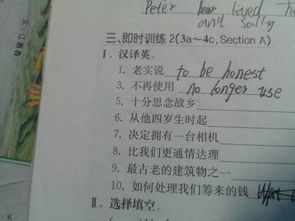 Peter bear loved
and sally
三、即时训练2(3a~4c, Section A)
Ⅰ. 汉译英。
1. 老实说 to be honest
3. 不再使用 no longer use
5. 十分思念故乡
6. 从他四岁生时起
7. 决定拥有一台相机
8. 比我们更通情达理
9. 最古老的建筑物之一
10. 如何处理我们筹来的钱
Ⅱ. 选择填空。